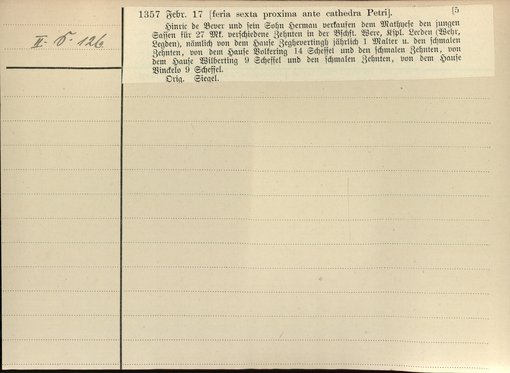 1357 Febr. 17 [feria sexta proxima ante cathedra Petri]. [5
Hinric de Bever und sein Sohn Herman verkaufen dem Mathyese den jungen
Sassen für 27 Mk. verschiedene Zehnten in der Bschft. Were, Kspl. Legden (Wehr,
Legden), nämlich von dem Hause Zeghevertingh jährlich 1 Malter u. den schmalen
Zehnten, von dem Hause Volkering 14 Scheffel und den schmalen Zehnten, von
dem Hause Wilberting 9 Scheffel und den schmalen Zehnten, von dem Hause
Vinckelo 9 Scheffel.
Orig. Siegel.
II. 126